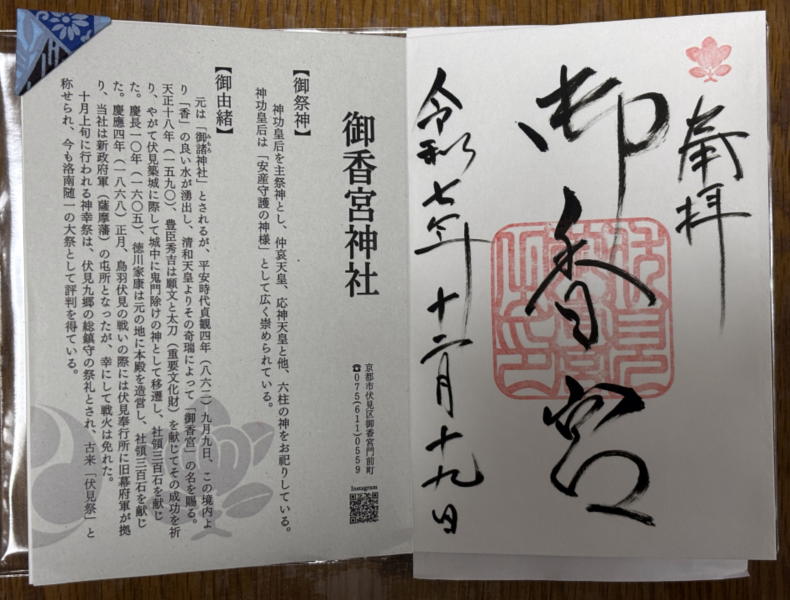 奉拝
御香宮
令和七年十二月十九日
御香宮神社
京都市伏見区御香宮門前町
☎075(611)0559
Instagram
【御祭神】
神功皇后を主祭神とし、仲哀天皇、応神天皇と他、六柱の神をお祀りしている。
神功皇后は「安産守護の神様」として広く崇められている。
【御由緒】
元は「御諸神社」とされるが、平安時代貞観四年（八六二）九月九日、この境内よ
り「香」の良い水が湧出し、清和天皇よりその奇瑞によって「御香宮」の名を賜る。
天正十八年（一五九〇）、豊臣秀吉は願文と太刀（重要文化財）を献じてその成功を祈
り、やがて伏見築城に際して城中に鬼門除けの神として移遷し、社領三百石を献じ
た。慶長一〇年（一六〇五）、徳川家康は元の地に本殿を造営し、社領三百石を献じ
た。慶應四年（一八六八）正月、鳥羽伏見の戦いの際には伏見奉行所に旧幕府軍が拠
り、当社は新政府軍（薩摩藩）の屯所となったが、幸にして戦火は免れた。
十月上旬に行われる神幸祭は、伏見九郷の総鎮守の祭礼とされ、古来「伏見祭」と
称せられ、今も洛南随一の大祭として評判を得ている。